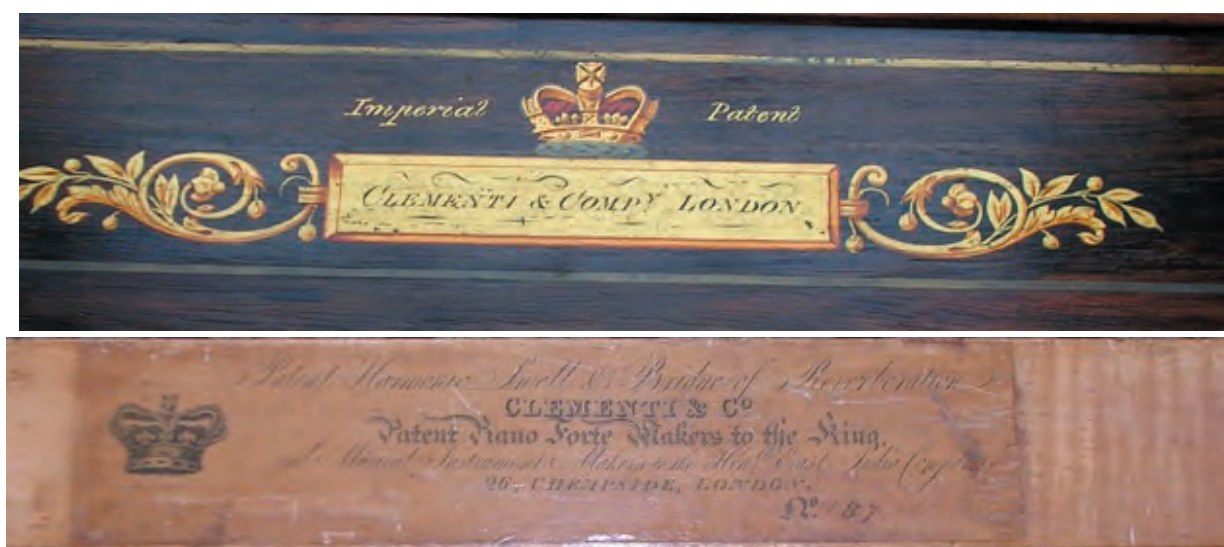 Imperial Patent
CLEMENTI & COMPY LONDON
Patent Harmonic Swell & Bridge of Reverberation
CLEMENTI & Co
Patent Piano Forte Makers to the King.
Musical Instrument Makers to the Honble East India Company
26, CHEAPSIDE, LONDON.
No. 187